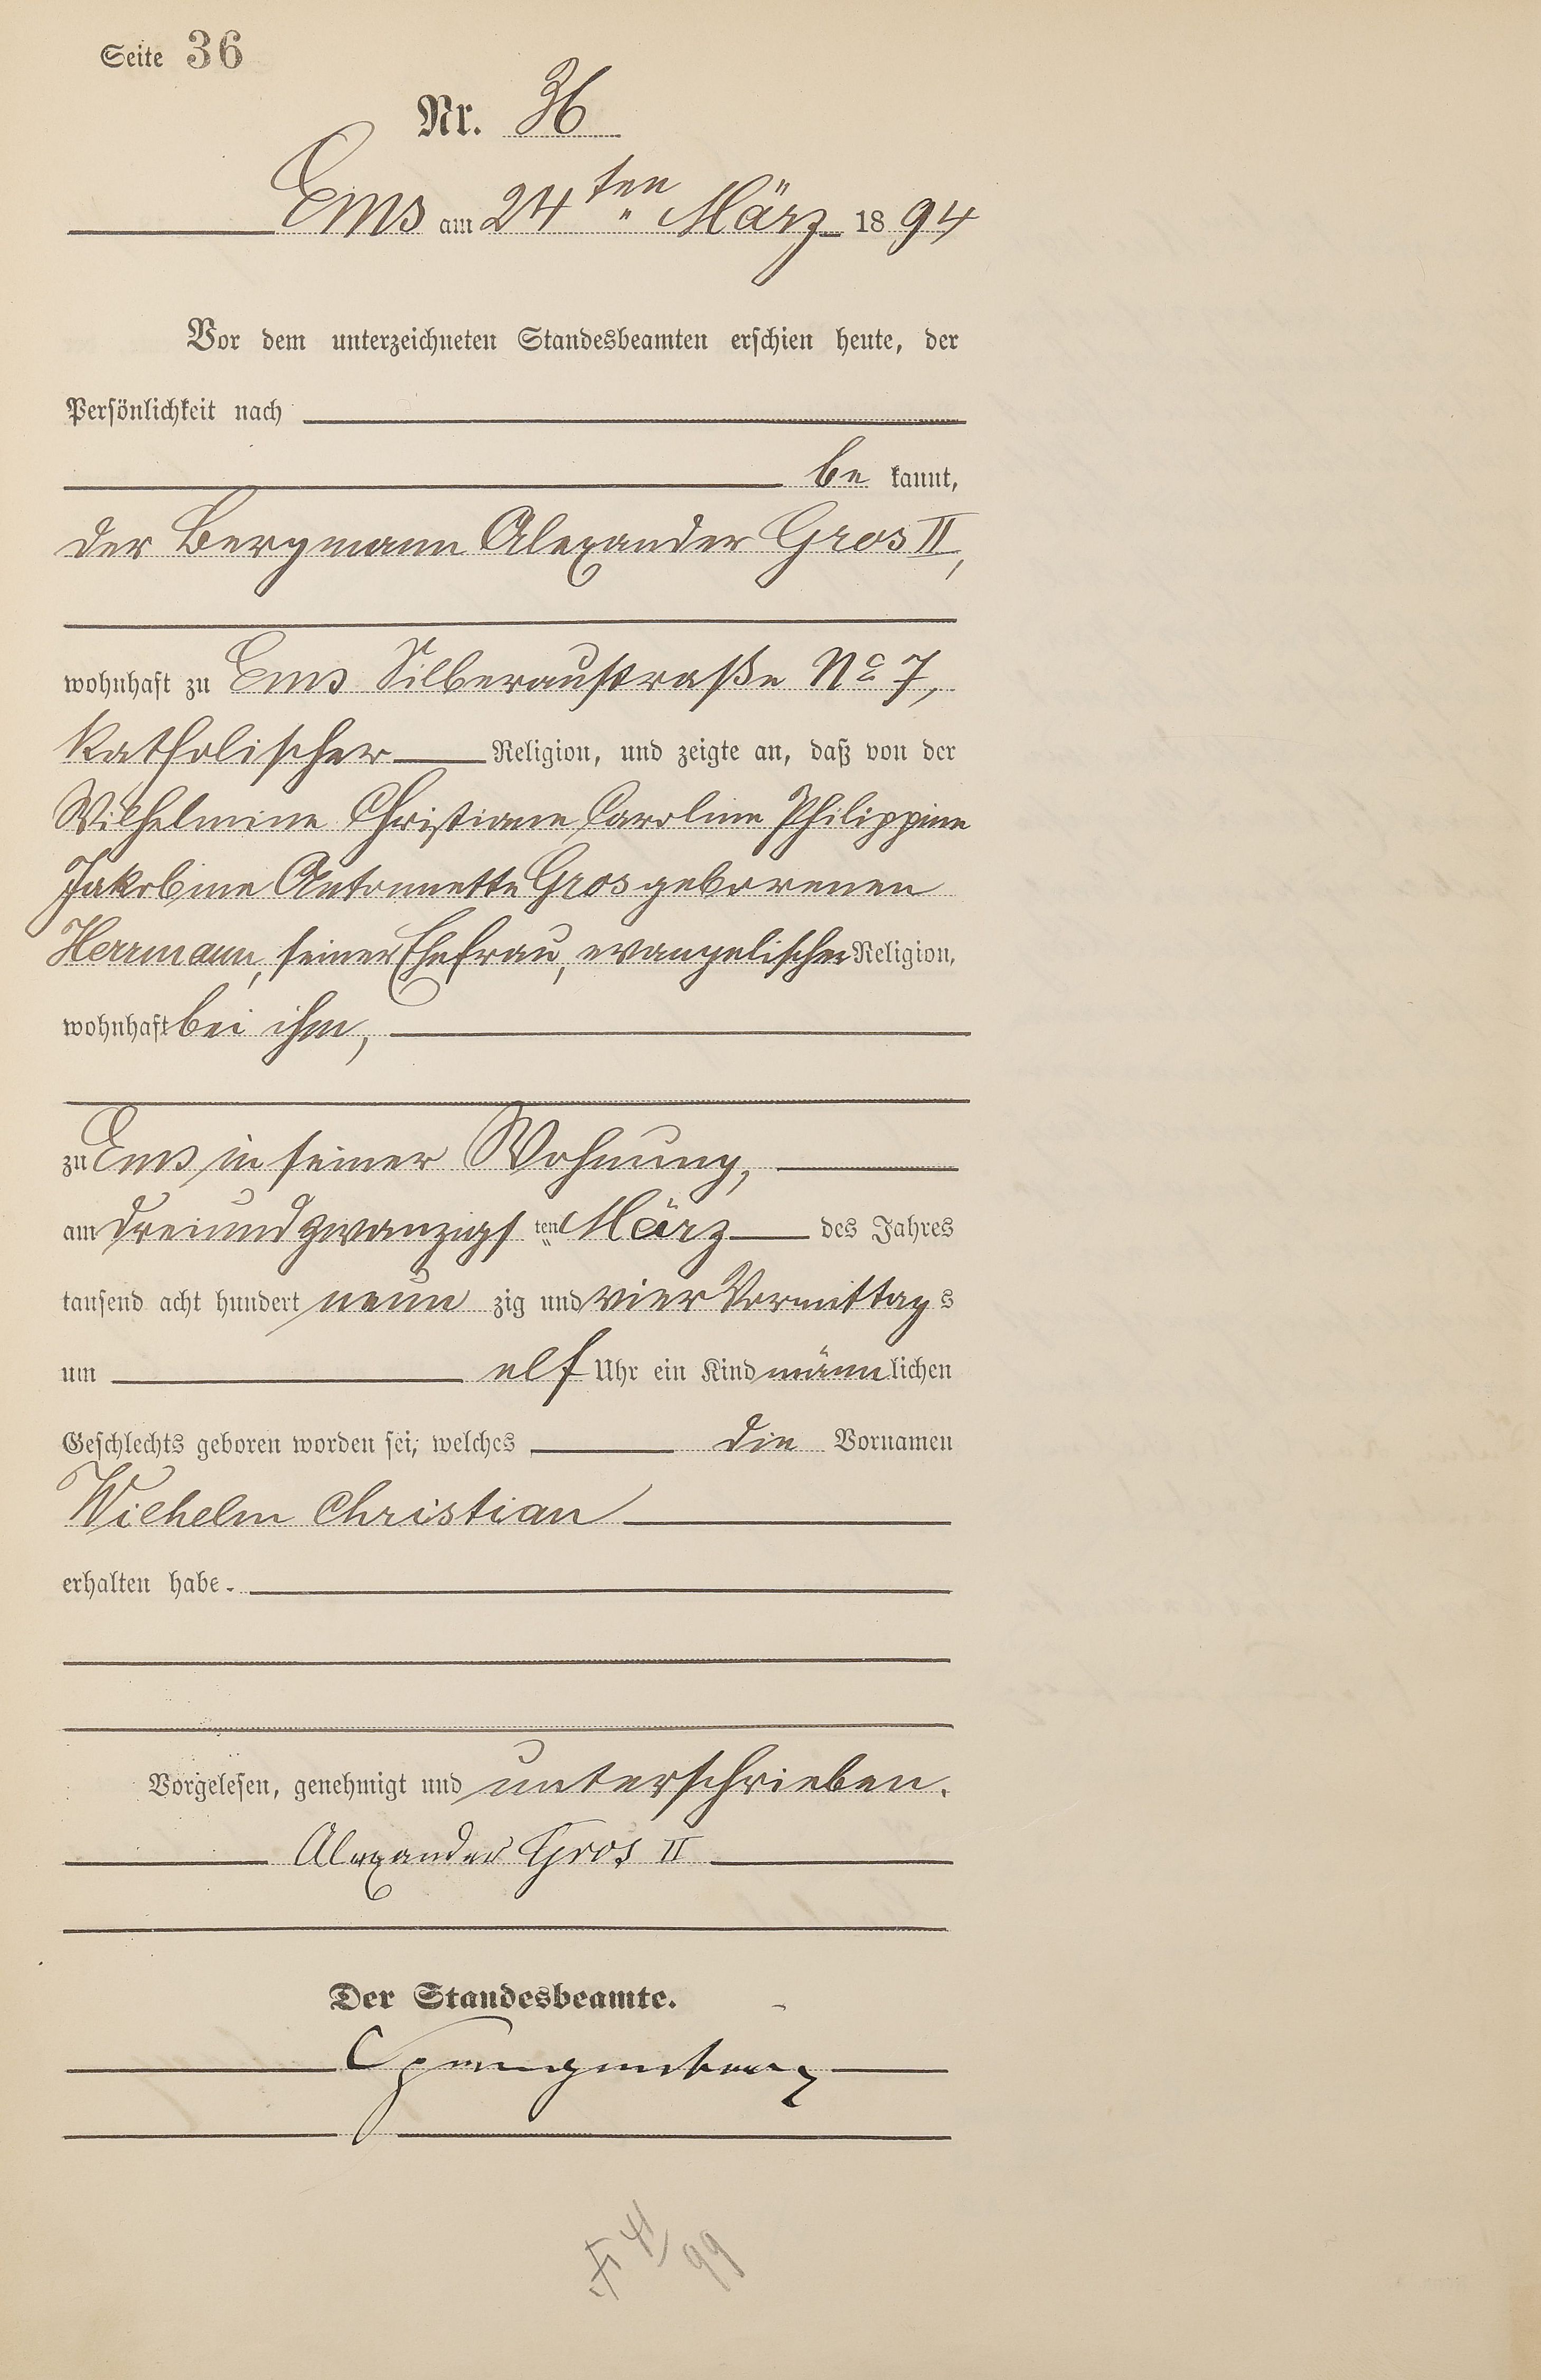 Seite 36
Nr. 36
Ems am 24ten März 1894
Vor dem unterzeichneten Standesbeamten erschien heute, der
Persönlichkeit nach
be kannt,
der Bergmann Alexander Gros II,
wohnhaft zu Ems Silberaustraße No 7,
katholischer Religion, und zeigte an, daß von der
Wilhelmine Christiane Caroline Philippine
Jakobine Antonnette Gros geborenen
Herrmann, seiner Ehefrau, evangelischer Religion,
wohnhaft bei ihm,
zu Ems in seiner Wohnung,
am dreiundzwanzigs ten März des Jahres
tausend acht hundert neun zig und vier Vormittag s
um elf Uhr ein Kind männ lichen
Geschlechts geboren worden sei, welches die Vornamen
Wilhelm Christian
erhalten habe.
Vorgelesen, genehmigt und unterschrieben.
Alexander Gros II
Der Standesbeamte.
99